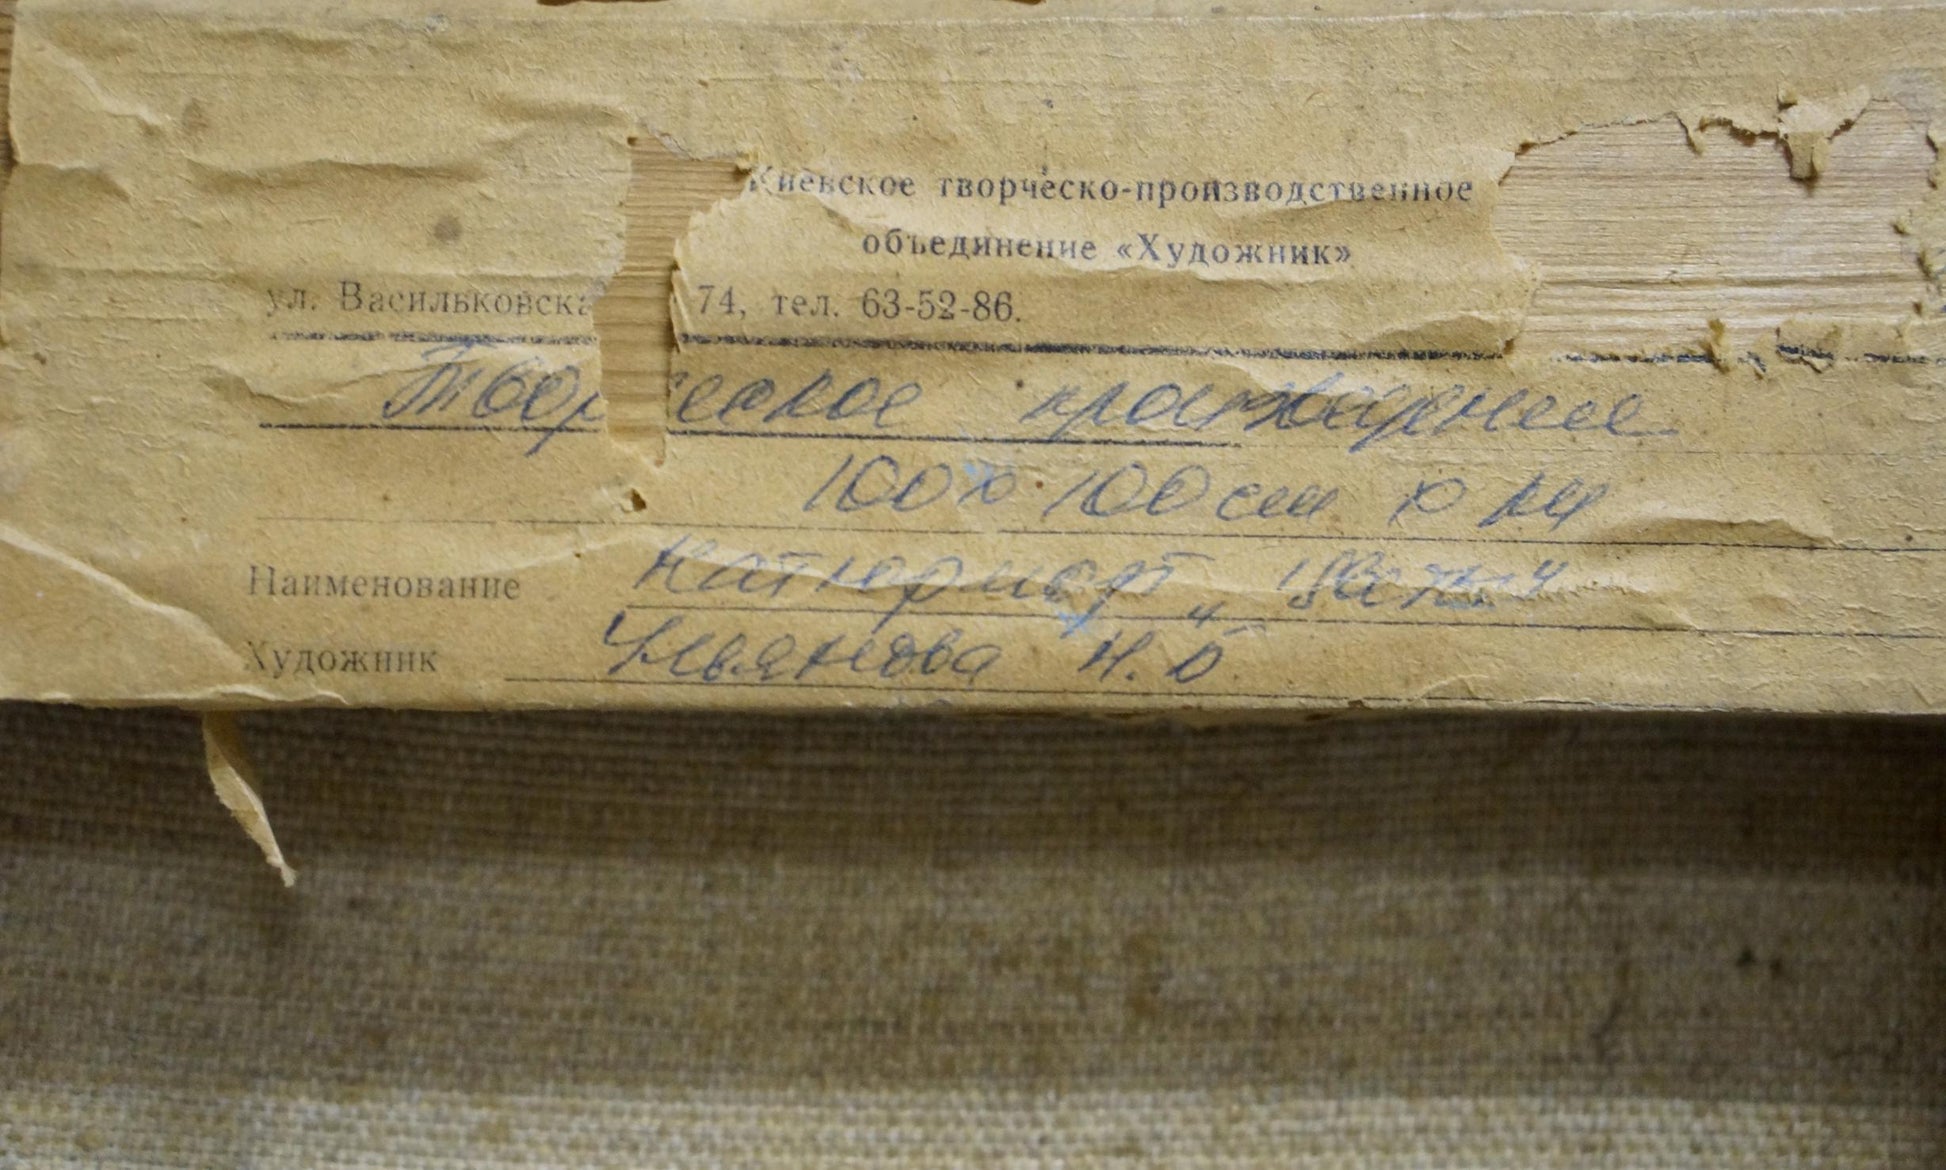 Киевское творческо-производственное
объединение «Художник»
ул. Васильковска 74, тел. 63-52-86.
Твор ческое произведение
100 х 100 см х м
Наименование натюрморт „Цветы"
Художник Ульянова Н. Ю.